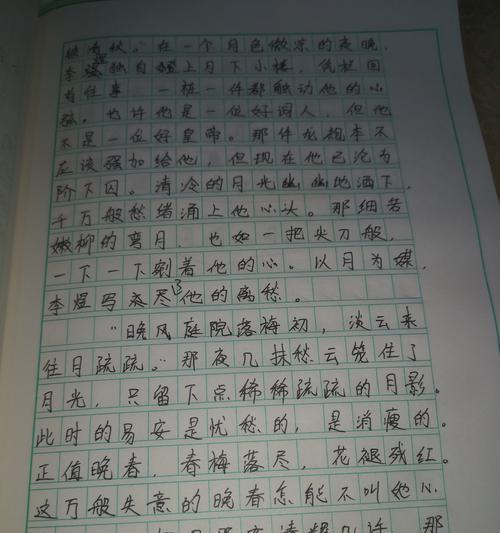 锁清秋。”在一个月色微凉的夜晚，
李煜独自登上月下小楼，凭栏回
首往事，一桩一件都触动他的心
弦。也许他是一位好词人，但他
不是一位好皇帝。那件龙袍本不
应该强加给他，但现在他已沦为
阶下囚。清冷的月光幽幽地洒下，
千万般愁绪涌上他心头。那细若
嫩柳的弯月，也如一把尖刀般，
一下一下剜着他的心。以月为媒，
李煜写不尽了他的离愁。
“晚风庭院落梅初，淡云来
往月疏疏。”那夜几抹愁云笼住了
月光，只留下点稀稀疏疏的月影。
此时的易安是忧愁的，是消瘦的。
正值晚春，春梅落尽，花褪残红。
这万般失意的晚春怎能不叫她心